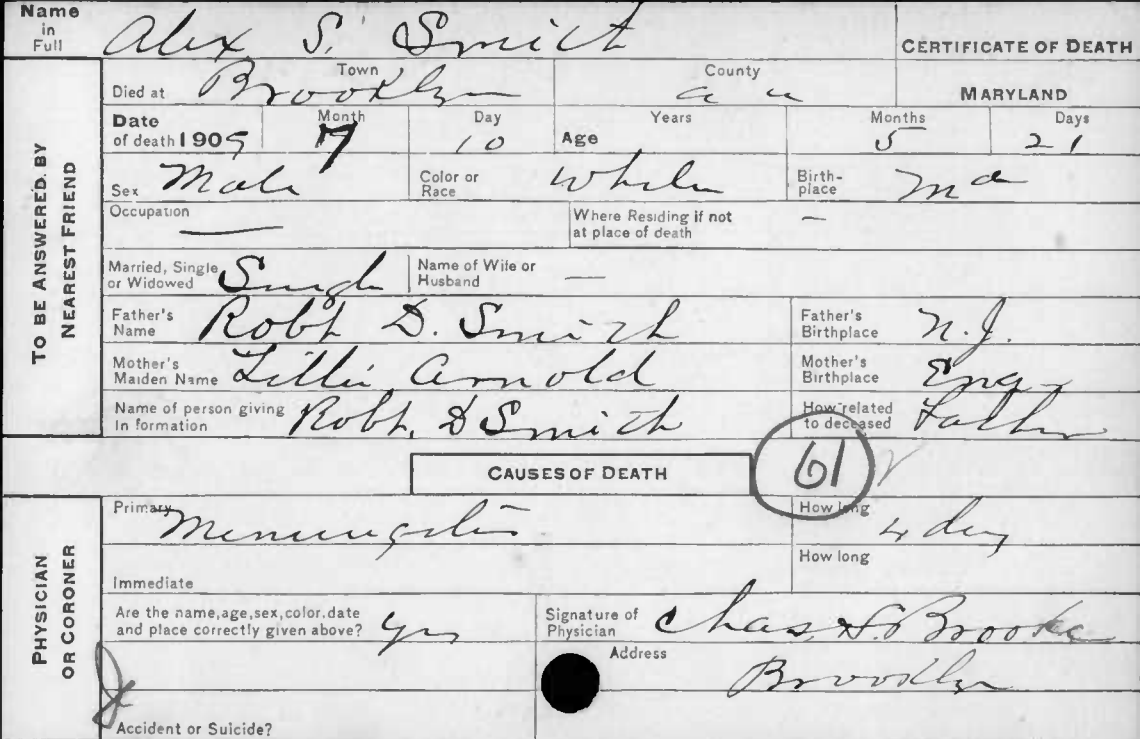 Name in Full Alex S. Smith
CERTIFICATE OF DEATH
TO BE ANSWERED BY NEAREST FRIEND
Died at Brooklyn Town County a a MARYLAND
Date of death 1909 Month 7 Day 10 Age Years Months 5 Days 21
Sex Male Color or Race White Birth-place Md
Occupation — Where Residing if not at place of death —
Married, Single or Widowed Single Name of Wife or Husband —
Father's Name Robt D. Smith Father's Birthplace N.J.
Mother's Maiden Name Lillie Arnold Mother's Birthplace Eng
Name of person giving In formation Robt. D Smith How related to deceased Father
CAUSES OF DEATH 61
PHYSICIAN OR CORONER
Primary Meningitis How long 4 day
Immediate How long
Are the name, age, sex, color, date and place correctly given above? yes Signature of Physician Chas. S. Brooke
Address Brooklyn
Accident or Suicide?